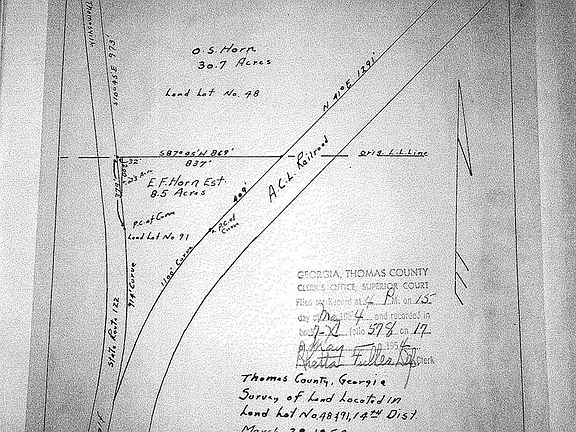 Thomasville
S 10° 45 E 973'
O.S. Horn
30.7 Acres
Land Lot No. 48
N 41° E 1291'
S 87° 05' N 869'
837'
Orig. L.L. Line
32'
779'
E.F. Horn Est.
8.5 Acres
409'
A.C.L. Railroad
P.C. of Curve
P.C. of Curve
Land Lot No 91
1100' Curve
914' Curve
State Route 122
GEORGIA, THOMAS COUNTY
CLERK'S OFFICE, SUPERIOR COURT
Filed for Record at 4 P. M. on 15
day of 195 4 and recorded in
book folio 578 on 17
of May 195 4
Rhetta Fuller Clerk
Thomas County, Georgia
Survey of Land Located in
Land Lot No. 48 & 91, 14TH Dist.